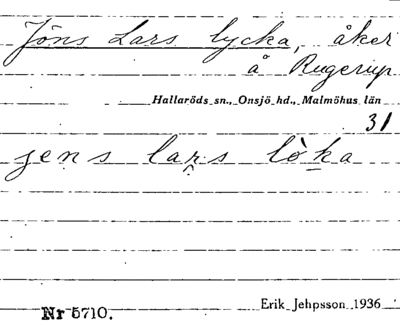 Jöns Lars lycka, åker
å Rugerup
Hallaröds sn., Onsjö hd., Malmöhus län
31
jens lar̯s lò̱ka
Nr 5710. Erik Jehpsson 1936